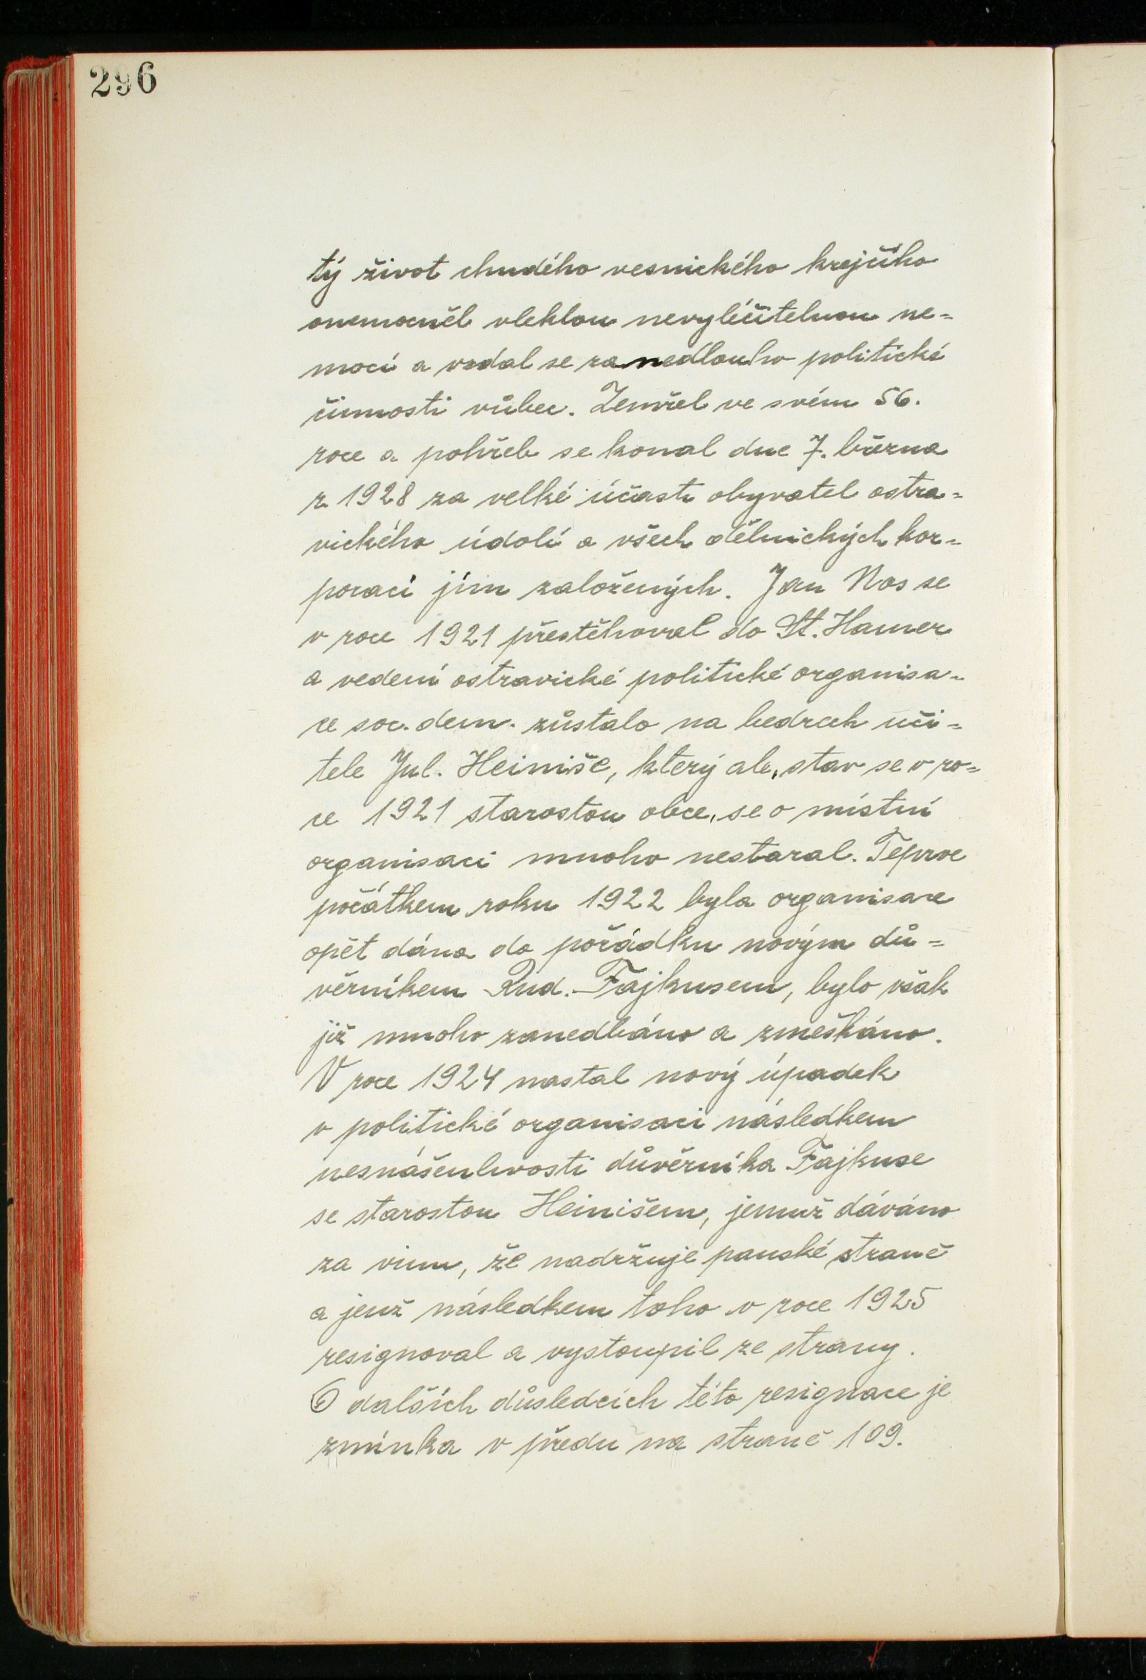 296
tý život chudého vesnického krejčího
onemocněl vleklou nevyléčitelnou ne=
mocí a vzdal se zanedlouho politické
činnosti vůbec. Zemřel ve svém 56.
roce a pohřeb se konal dne 7. března
r. 1928 za velké účasti obyvatel ostra=
vického údolí a všech dělnických kor=
porací jím založených. Jan Nos se
v roce 1921 přestěhoval do St. Hamer
a vedení ostravické politické organisa=
ce soc. dem. zůstalo na bedrech uči=
tele Jul. Heiniše, který ale, stav se v ro=
ce 1921 starostou obce, se o místní
organisaci mnoho nestaral. Teprve
počátkem roku 1922 byla organisace
opět dána do pořádku novým dů=
věrníkem Rud. Fajkusem, bylo však
již mnoho zanedbáno a zmeškáno.
V roce 1924 nastal nový úpadek
v politické organisaci následkem
nesnášenlivosti důvěrníka Fajkuse
se starostou Heinišem, jemuž dáváno
za vinu, že nadržuje panské straně
a jenž následkem toho v roce 1925
resignoval a vystoupil ze strany.
O dalších důsledcích této resignace je
zmínka v předu na straně 109.